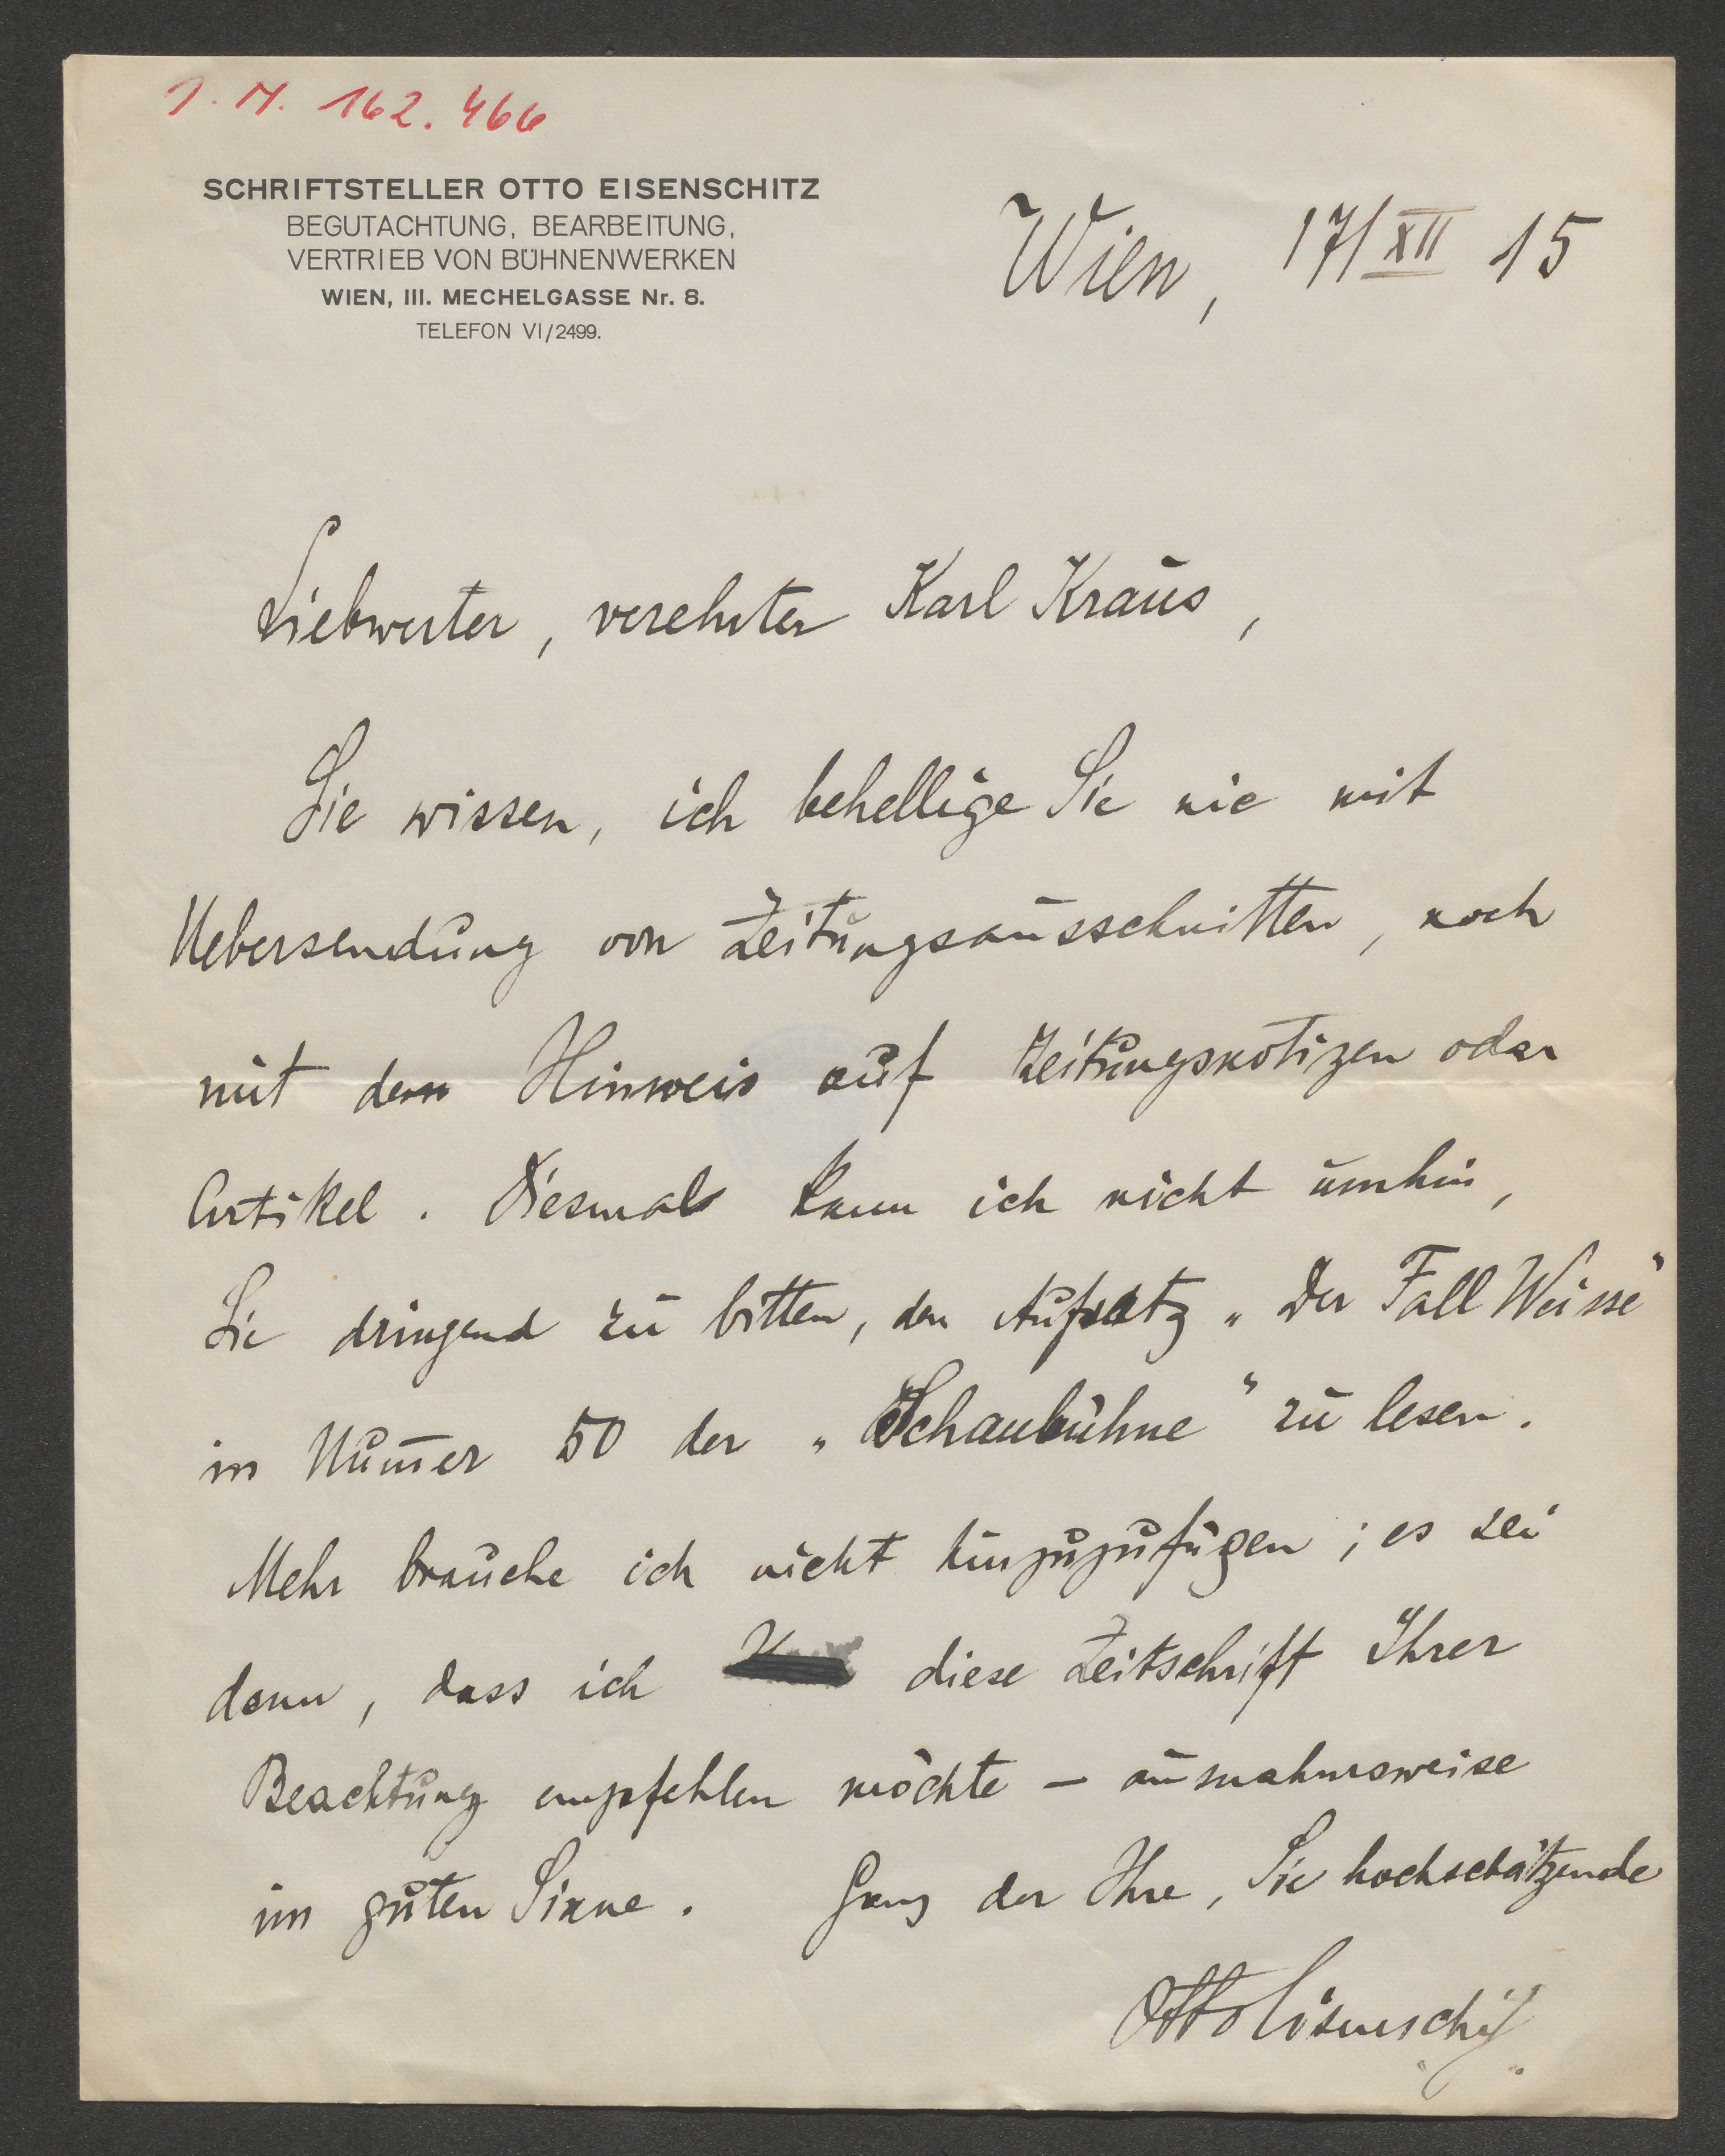 J. N. 162.466
SCHRIFTSTELLER OTTO EISENSCHITZ
BEGUTACHTUNG, BEARBEITUNG,
VERTRIEB VON BÜHNENWERKEN
WIEN, III. MECHELGASSE Nr. 8.
TELEFON VI/2499.
Wien, 17/XII 15
Liebwerter, verehrter Karl Kraus,
Sie wissen, ich behellige Sie nie mit
Uebersendung von Zeitungsausschnitten, noch
mit dem Hinweis auf Zeitungsnotizen oder
Artikel. Diesmal kann ich nicht umhin,
Sie dringend zu bitten, den Aufsatz „Der Fall Weisse“
in Num̅er 50 der „Schaubühne“ zu lesen.
Mehr brauche ich nicht hinzuzufügen; es sei
denn, dass ich diese Zeitschrift Ihrer
Beachtung empfehlen möchte – ausnahmsweise
im guten Sinne. Ganz der Ihre, Sie hochschätzende
Otto Eisenschitz